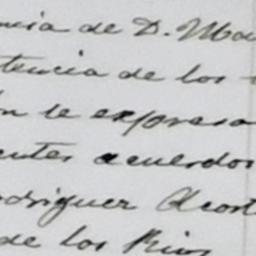 ncia de D. Ma
tencia de los
n le expresa
entes acuerdos
odriguez Acost
de los Rios